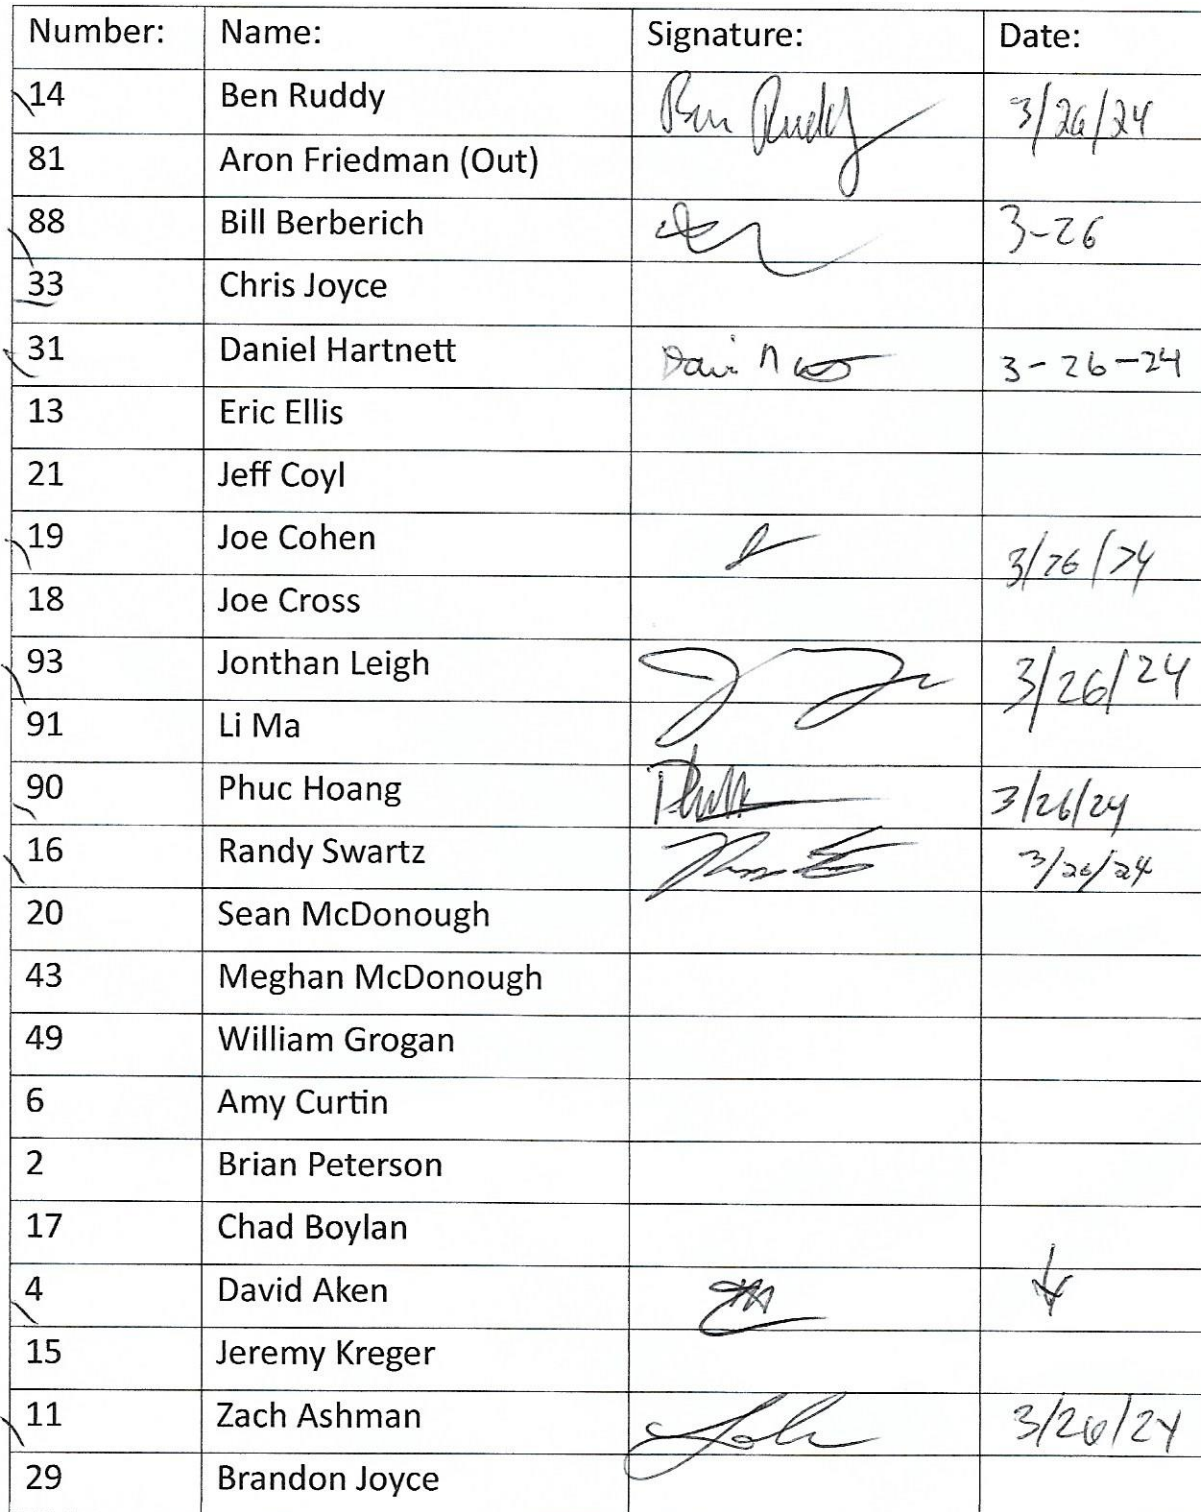 Number: Name: Signature: Date:
14 Ben Ruddy Ben Ruddy 3/26/24
81 Aron Friedman (Out)
88 Bill Berberich 3-26
33 Chris Joyce
31 Daniel Hartnett 3-26-24
13 Eric Ellis
21 Jeff Coyl
19 Joe Cohen 3/26/24
18 Joe Cross
93 Jonthan Leigh 3/26/24
91 Li Ma
90 Phuc Hoang 3/26/24
16 Randy Swartz 3/26/24
20 Sean McDonough
43 Meghan McDonough
49 William Grogan
6 Amy Curtin
2 Brian Peterson
17 Chad Boylan
4 David Aken
15 Jeremy Kreger
11 Zach Ashman 3/26/24
29 Brandon Joyce